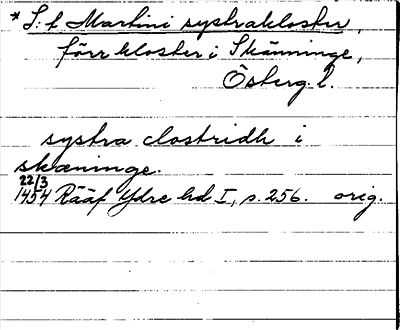 * S:t Martini systrakloster,
förr kloster i Skänninge,
Österg. l.
systra clostridh i
skæninge.
22/3
1454 Rääf Ydre hd I, s. 256. orig.